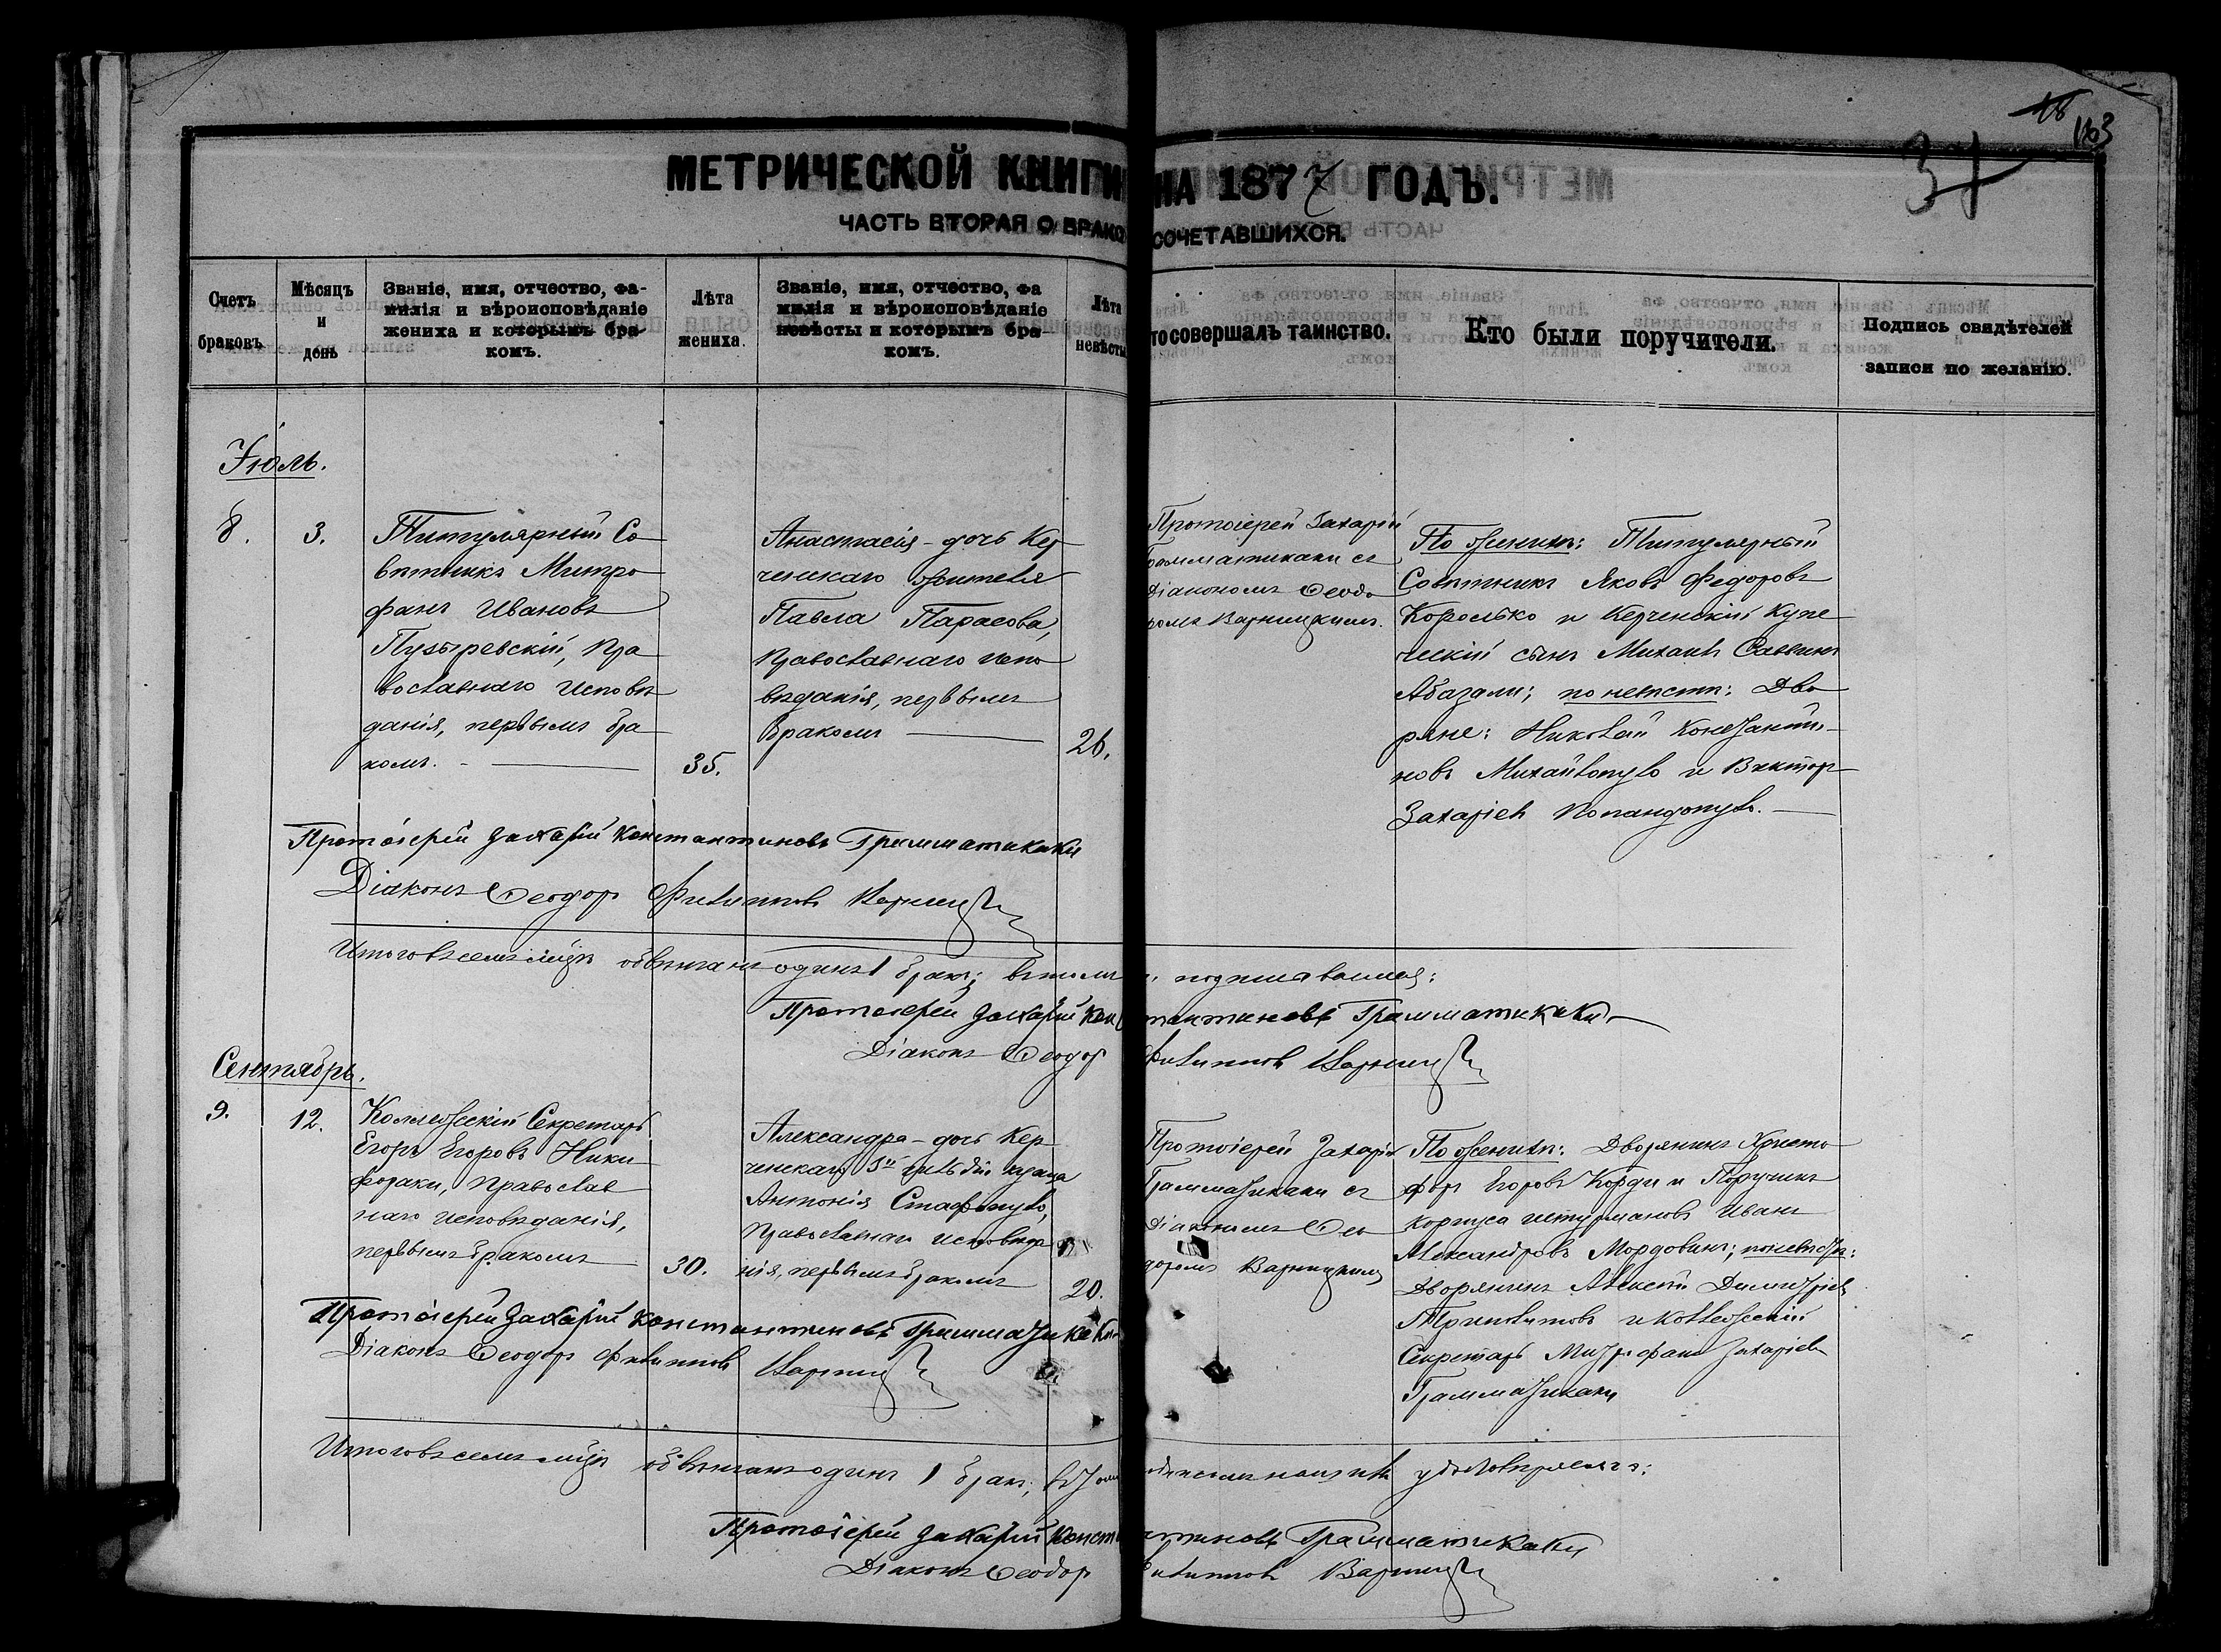 18
163
37
МЕТРИЧЕСКОЙ КНИГИ НА 1877 ГОДЪ.
ЧАСТЬ ВТОРАЯ О БРАКОСОЧЕТАВШИХСЯ.
Счетъ браковъ.
Мѣсяцъ и день
Званіе, имя, отчество, фа-
милія и вѣроисповѣданіе
жениха и которымъ бра-
комъ.
Лѣта жениха.
Званіе, имя, отчество, фа
милія и вѣроисповѣданіе
невѣсты и которымъ бра-
комъ.
Лѣта невѣсты
то совершалъ таинство.
Кто были поручители.
Подпись свидѣтелей
записи по желанію.
Іюль.
8.
3.
Титулярный Со
вѣтникъ Митро
фанъ Ивановъ
Пузыревскій, Пра
вославнаго исповѣ
данія, первымъ бра
комъ.
35.
Анастасія - дочь Кер
ченскаго жителя
Павла Парасова,
Православнаго испо
вѣданія, первымъ
бракомъ
26.
Протоіерей Захарій
Грамматикаки съ
Діакономъ Ѳеодо
ромъ Варницкимъ.
По женихѣ: Титулярный
Совѣтникъ Яковъ Федоровъ
Королько и Керченскій Купе
ческій сынъ Михаилъ Саввинъ
Абазали; по невѣстѣ: Дво
ряне: Николай Константи-
новъ Михайлопуло и Викторъ
Захаріевъ Попандопуло.
Протоіерей Захарій Константиновъ Грамматикаки
Діаконъ Ѳеодоръ Филипповъ Варниц
Итого въ семъ мѣцѣ обвѣнчанъ одинъ 1 бракъ; въ томъ подписавшися:
Протоіерей Захарій Константиновъ Грамматикаки
Діаконъ Ѳеодор Филипповъ Варниц
Сентябрь.
9.
12.
Коллежскій Секретарь
Егоръ Егоровъ Ники
фораки, Православ
наго исповѣданія,
первымъ бракомъ
30.
Александра - дочь Кер
ченскаго гильдіи купца
Антонія Стафопуло,
Православнаго исповѣда
нія, первымъ бракомъ
20.
Протоіерей Захарій
Грамматикаки съ
Діакономъ Ѳео
доромъ Варницкимъ
По женихѣ: Дворянинъ Христо
форъ Егоровъ Корди и Поручикъ
корпуса штурмановъ Иванъ
Александровъ Мордовинъ; по невѣстѣ:
Дворянинъ Алексѣй Дмитріевъ
и Коллежскій
Секретарь Митрофанъ Захаріевъ
Грамматикаки
Протоіерей Захарій Константиновъ Грамматикаки
Діаконъ Ѳеодоръ Филипповъ Варниц
Итого въ семъ мѣцѣ обвѣнчанъ одинъ 1 бракъ; въ томъ удостовѣряемъ:
Протоіерей Захарій Константиновъ Грамматикаки
Діаконъ Ѳеодор Филипповъ Варниц